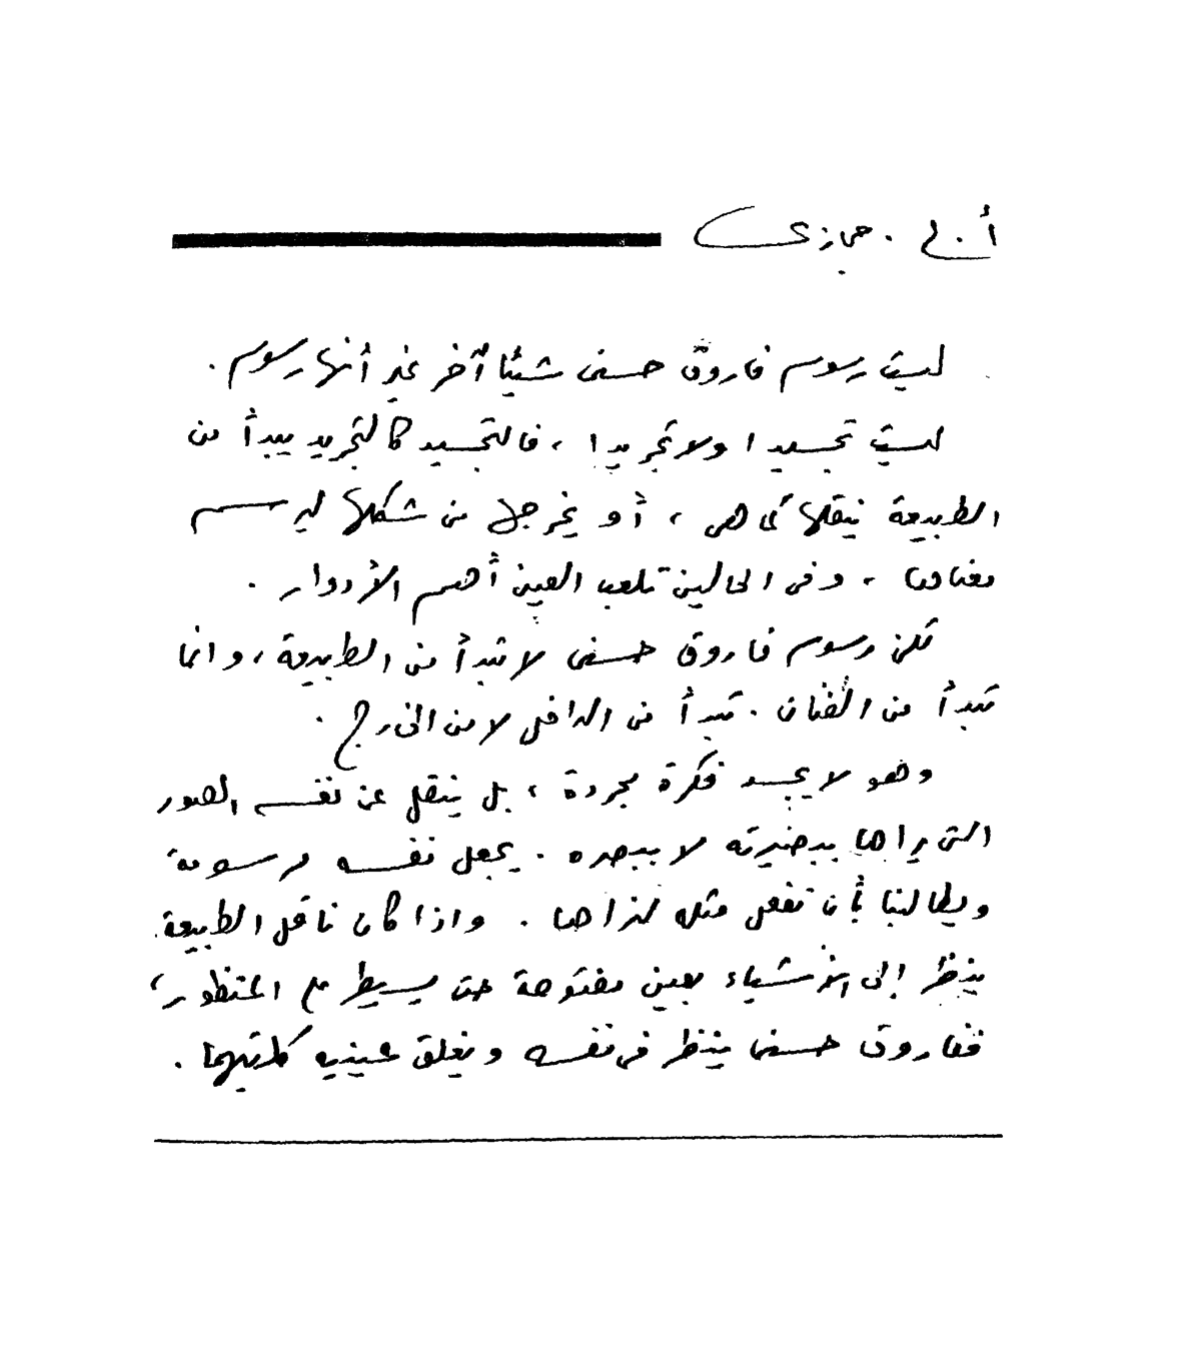 أ. ع. حجازي
ليست رسوم فاروق حسنى شيئا آخر غير أنها رسوم.
ليست تجسيدا ولا تجريدا ، فالتجسيد كالتجريد يبدأ من
الطبيعة ينقلها كما هى ، أو يخرج من شكلها ليرسم
معناها ، وفى الحالين تلعب العين أهم الأدوار .
لكن رسوم فاروق حسنى لا تبدأ من الطبيعة ، وانما
تبدأ من الفنان . تبدأ من الداخل لا من الخارج .
وهو لا يجسد فكرة مجردة ، بل ينقل عن نفسه الصور
التى يراها ببصيرته لا ببصره . يجعل نفسه مرسومة
ويطالبنا بأن نفعل مثله لنراها . واذا كان ناقل الطبيعة
ينظر إلى الأشياء بعين مفتوحة حتى يسيطر على المنظور ،
ففاروق حسنى ينظر فى نفسه ويغلق عينيه كلتيهما .